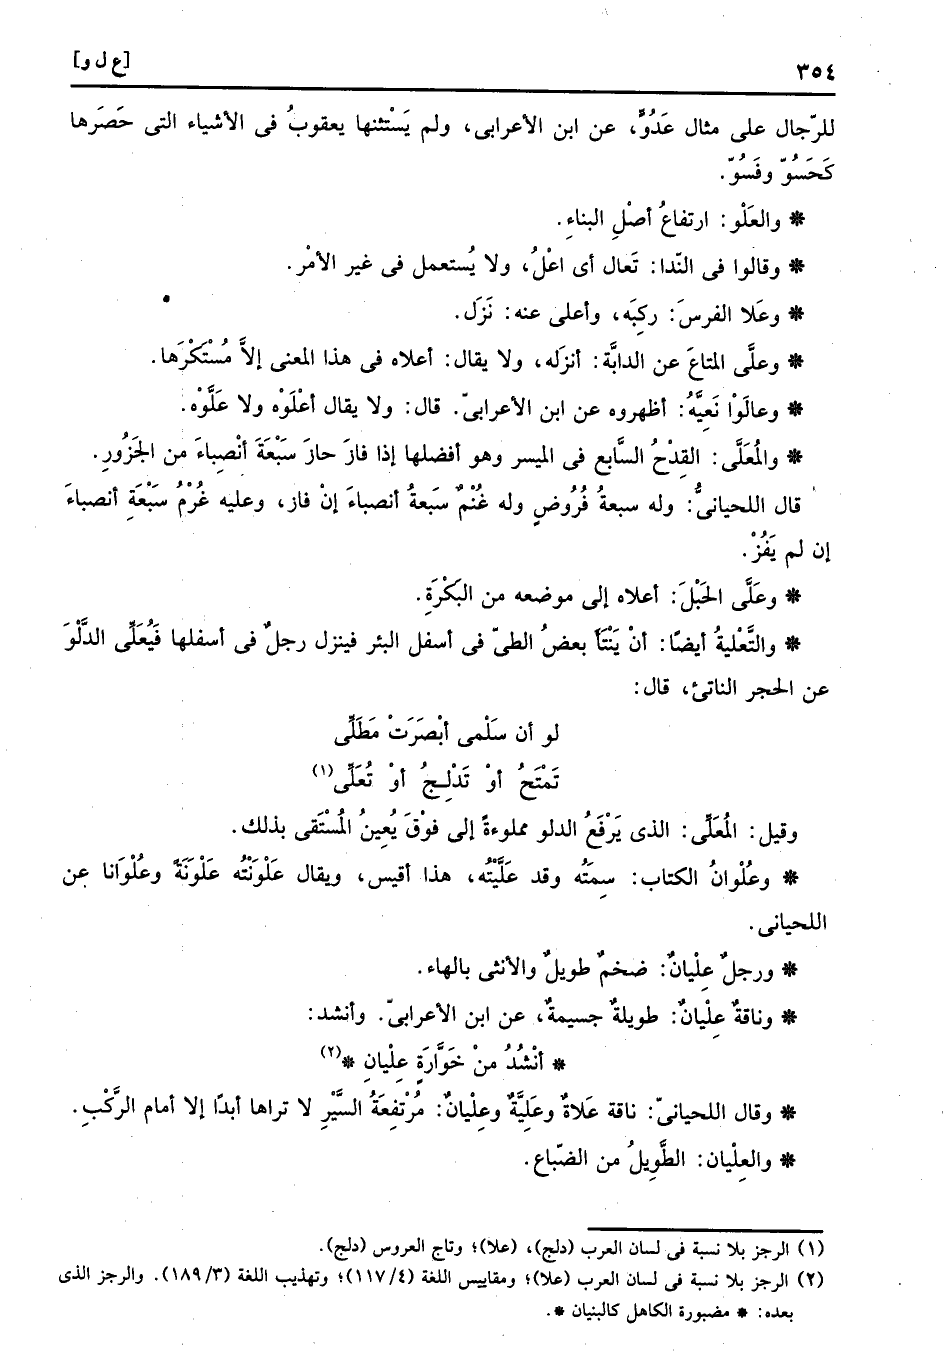 ٣٥٤
[ع ل و]
للرّجال على مثال عَدُوٍّ، عن ابن الأعرابى، ولم يَسْتثنها يعقوبُ فى الأشياء التى حَصَرها
كَحَسُوّ وفَسُوّ.
* والعَلْو: ارتفاعُ أصْلِ البناءِ.
* وقالوا فى النّدا: تَعال أى اعْلُ، ولا يُستعمل فى غير الأمْر.
* وعَلا الفرسَ: ركِبَه، وأعلى عنه: نَزَل.
* وعلَّى المتاعَ عن الدابَّة: أنزَله، ولا يقال: أعلاه فى هذا المعنى إلاَّ مُسْتَكْرَها.
* وعالَوْا نَعِيَّهُ: أظهروه عن ابن الأعرابىّ. قال: ولا يقال أعْلَوْه ولا علَّوْه.
* والمُعَلَّى: القِدْحُ السَّابع فى الميسر وهو أفضلها إذا فازَ حازَ سَبْعَةَ أنْصِباءَ من الجَزُورِ.
قال اللحيانىُّ: وله سبعةُ فُرُوضٍ وله غُنْمٌ سَبعةُ أنصباءَ إنْ فاز، وعليه غُرْمُ سَبْعَةِ أنصباءَ
إن لم يَفُزْ.
* وعَلَّى الحَبْلَ: أعلاه إلى موضعه من البَكْرَةِ.
* والتَّعْليةُ أيضًا: أنْ يَنْتَأَ بعضُ الطىّ فى أسفل البئر فينزل رجلٌ فى أسفلها فَيُعَلِّى الدلْوَ
عن الحجر الناتئ، قال:
لو أن سَلْمى أبْصَرَتْ مَطَلِّى
تَمْتَحُ أوْ تَدْلِـجُ أوْ تُعَلِّى(١)
وقيل: المُعَلِّى: الذى يَرْفَعُ الدلو مملوءةً إلى فوْقَ يُعِينُ المُسْتَقى بذلك.
* وعُلْوانُ الكتاب: سِمَتُه وقد عَلَّيْتُه، هذا أقيس، ويقال عَلْوَنْتُه عَلْوَنَةً وعُلْوَانا عن
اللحيانى.
* ورجلٌ عِلْيانٌ: ضخمٌ طويلٌ والأنثى بالهاء.
* وناقةٌ عِلْيانٌ: طويلةٌ جسيمةٌ، عن ابن الأعرابىّ. وأنشد:
* أنْشُدُ منْ خَوَّارَةٍ عِلْيانِ *(٢)
* وقال اللحيانىّ: ناقة عَلاةٌ وعَلِيَّةٌ وعلْيانٌ: مُرْتفِعَةُ السَّيْرِ لا تراها أبدًا إلا أمام الرَّكْبِ.
* والعِلْيان: الطَّوِيلُ من الضّباع.
(١) الرجز بلا نسبة فى لسان العرب (دلج)، (علا)؛ وتاج العروس (دلج).
(٢) الرجز بلا نسبة فى لسان العرب (علا)؛ ومقاييس اللغة (١١٧/٤)؛ وتهذيب اللغة (١٨٩/٣). والرجز الذى
بعده: * مضبورة الكاهل كالبنيان *.